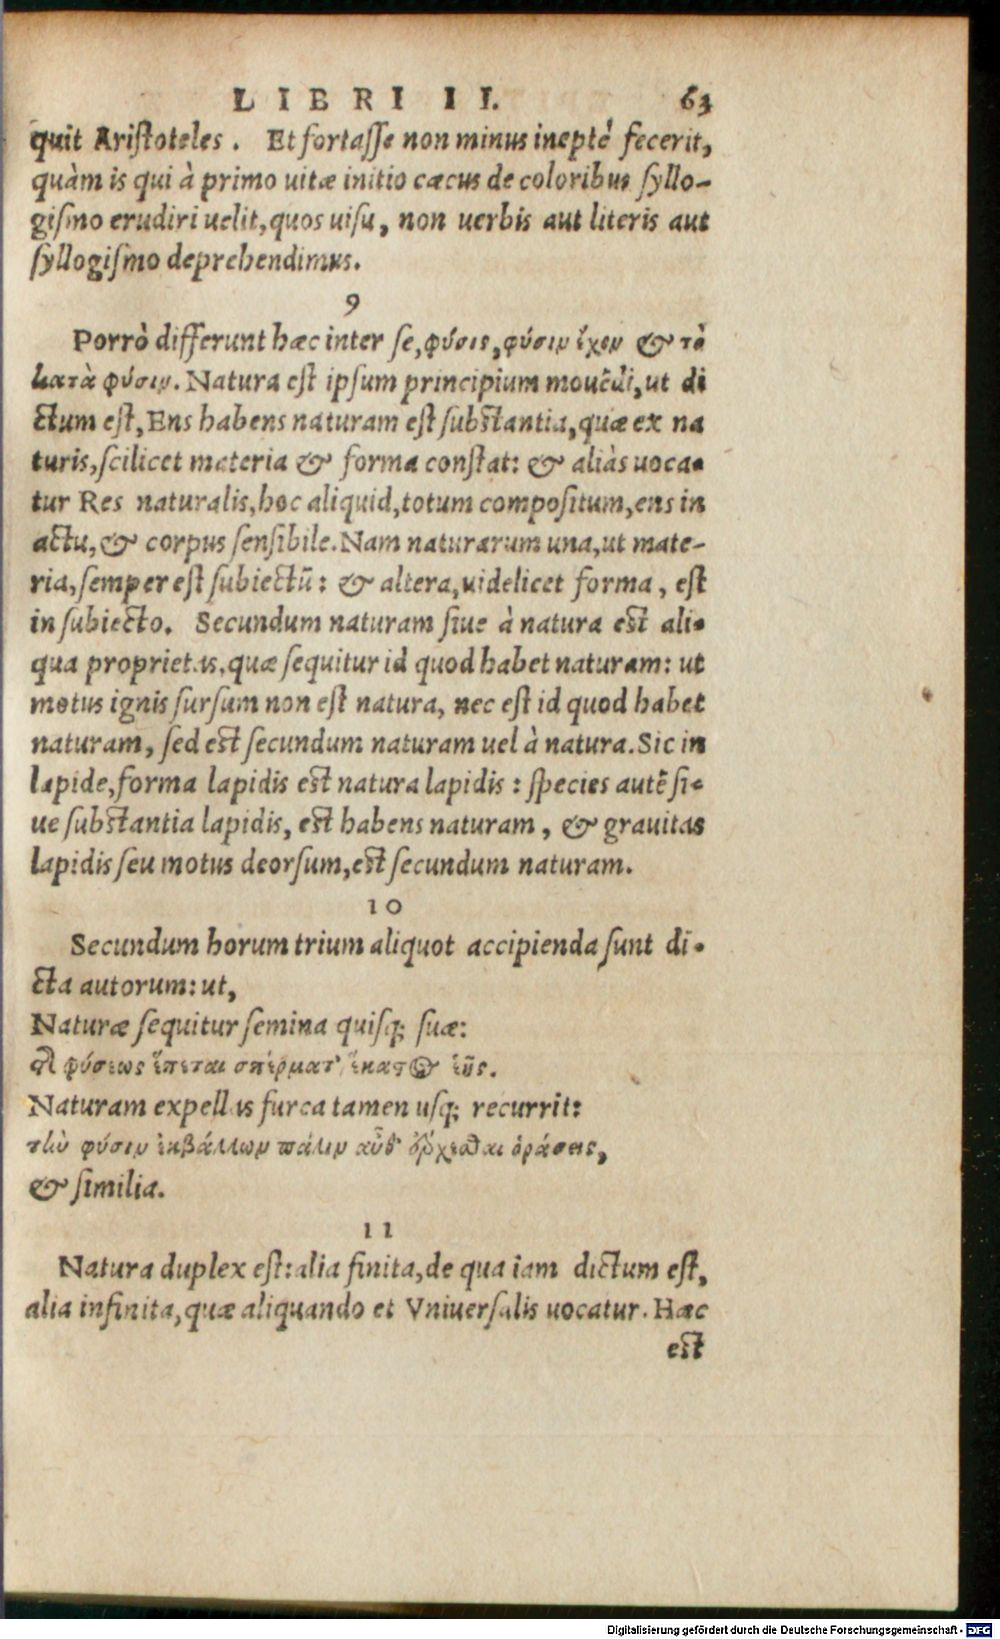 LIBRI II. 63
quit Aristoteles. Et fortasse non minus ineptè fecerit,
quàm is qui à primo uitæ initio cæcus de coloribus syllo-
gismo erudiri uelit, quos uisu, non uerbis aut literis aut
syllogismo deprehendimus.
9
Porrò differunt hæc inter se, φύσις, φύσιν ἔχον & τὸ
κατὰ φύσιν. Natura est ipsum principium mouẽdi, ut di
ctum est, Ens habens naturam est substantia, quæ ex na
turis, scilicet materia & forma constat: & aliàs uoca-
tur Res naturalis, hoc aliquid, totum compositum, ens in
actu, & corpus sensibile. Nam naturarum una, ut mate-
ria, semper est subiectũ: & altera, uidelicet forma, est
in subiecto. Secundum naturam siue à natura est ali-
qua proprietas, quæ sequitur id quod habet naturam: ut
motus ignis sursum non est natura, nec est id quod habet
naturam, sed est secundum naturam uel à natura. Sic in
lapide, forma lapidis est natura lapidis: species autẽ si-
ue substantia lapidis, est habens naturam, & grauitas
lapidis seu motus deorsum, est secundum naturam.
10
Secundum horum trium aliquot accipienda sunt di-
cta autorum: ut,
Naturæ sequitur semina quisq; suæ:
φύσεως ἕπεται σπέρματ' ἕκαστος ἑῆς.
Naturam expellas furca tamen usq; recurrit:
τὴν φύσιν ἐκβάλλων πάλιν
& similia.
11
Natura duplex est: alia finita, de qua iam dictum est,
alia infinita, quæ aliquando et Vniuersalis uocatur. Hæc
est
Digitalisierung gefördert durch die Deutsche Forschungsgemeinschaft - DFG